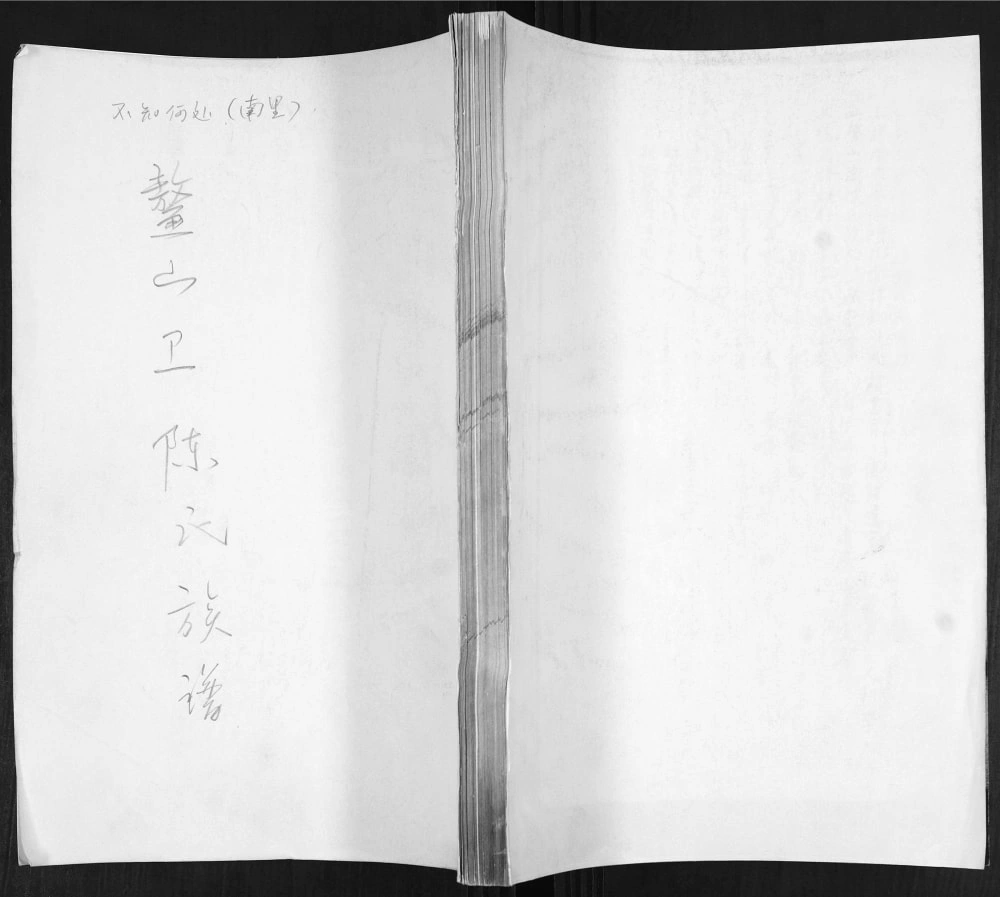 不知何处（南里）
鳌山卫陈氏族谱